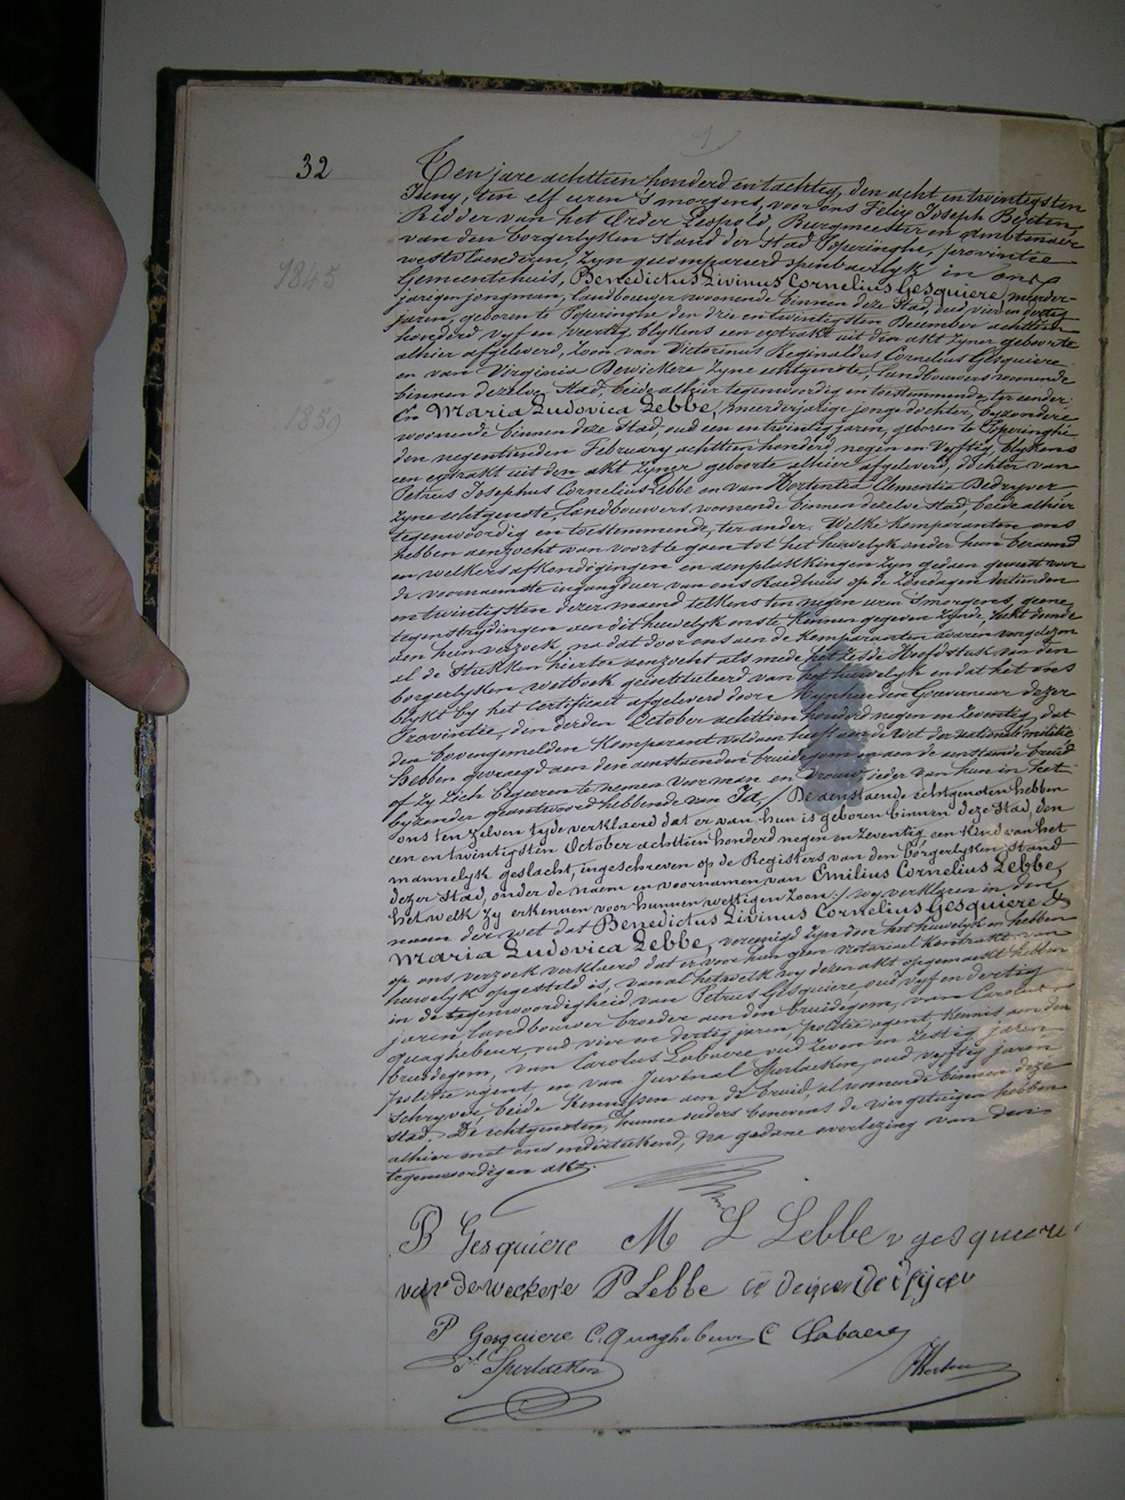 32
Ten jare achttien honderd en tachtig, den acht en twintigsten
Juny, ten elf uren 's morgens, voor ons Felix Joseph
Ridder van het Order Leopold, Burgmeester en Ambtenaer
van den borgerlyken Stand der Stad Poperinghe, provintie
westvlaenderen, zyn gecompareerd openbaerlyk in ons
1845
Gemeentehuis, Benedictus Livinus Cornelius Gesquiere, meerder-
jarigen jongman, landbouwer woonende binnen deze Stad, oud vier en dertig
jaren, geboren te Poperinghe den drie en twintigsten December achttien
honderd vyf en veertig, blykens een extrakt uit den akt zyner geboorte
alhier afgeleverd, Zoon van Victorinus Reginaldus Cornelius Gesquiere
en van Virginia Dewickere zyne echtgenote, Landbouwers woonende
binnen dezelve Stad, beide alhier tegenwoordig en toestemmende, ter eender.
En Maria Ludovica Lebbe, meerderjarige jonge dochter, byzondere
1859
woonende binnen deze Stad, oud een en twintig jaren, geboren te Poperinghe
den negentienden February achttien honderd negen en vyftig, blykens
een extrakt uit den akt zyner geboorte alhier afgeleverd, dochter van
Petrus Josephus Cornelius Lebbe en van Hortentia Clementia Dedryver
zyne echtgenote, Landbouwers, woonende binnen dezelve Stad, beide alhier
tegenwoordig en toestemmende, ter ander. Welke komparanten ons
hebben aenzocht van voorts te gaen tot het huwelyk onder hun beraemd
en welkers afkondigingen en aenplakkingen zyn gedaen geweest voor
de voornaemste ingangdeur van ons Raedhuis op de Zondagen dertienden
en twintigsten dezer maend telkens ten negen uren 's morgens, geene
tegenstrydingen aen dit huwelyk ons te kennen gegeven zynde, recht doende
aen hun verzoek, na dat door ons aen de komparanten waren voorgelezen
al de Stukken hiertoe aenzocht als mede het zesde Hoofdstuk van den
borgerlyken wetboek geintituleerd van het huwelyk en dat het ons
blykt by het certificaet afgeleverd door Mynheer den Gouverneur dezer
Provintie, den derden October achttien honderd negen en zeventig, dat
den bovengemelden Komparant voldaen heeft aen de wet der nationale militie
Hebben gevraegd aen den aenstaenden bruidegom en aen de aenstaende bruid
of zy zich begeeren te nemen voor man en vrouw, ieder van hun in het
byzonder geantwoord hebbende van Ja, / De aenstaende echtgenoten hebben
ons ten zelven tyde verklaerd dat er van hun is geboren binnen deze Stad, den
een en twintigsten October achttien honderd negen en zeventig een Kind van het
mannelyk geslacht, ingeschreven op de Registers van den borgerlyken Stand
dezer Stad, onder de naem en voornamen van Emilius Cornelius Lebbe,
hetwelk zy erkennen voor hunnen wettigen Zoon :/ wy verklaren in den
naem der wet dat Benedictus Livinus Cornelius Gesquiere &
Maria Ludovica Lebbe, vereenigd zyn door het huwelyk en hebben
op ons verzoek verklaerd dat er voor hun geen notariael kontrakt van
huwelyk opgesteld is, van al hetwelk wy dezen akt opgemaekt hebben
in de tegenwoordigheid van Petrus Gesquiere, oud vyf en dertig
jaren, landbouwer broeder aen den bruidegom, van Carolus
Quaghebeur, oud vier en dertig jaren, politie agent, kennis aen den
bruidegom, van Carolus Labaere oud zeven en zestig jaren
politie agent, en van Juvenal Sperlaeken, oud vyftig jaren
schryver, beide Kennissen aen de bruid, al woonende binnen deze
Stad. De echtgenoten, hunne ouders benevens de vier getuigen hebben
alhier met ons onderteekend, na gedane overlezing van den
tegenwoordigen akt.
B Gesquiere M L Lebbe v gesquiere
P Lebbe
P Gesquiere C. Quaghebeur C Labaere
Sperlaeken